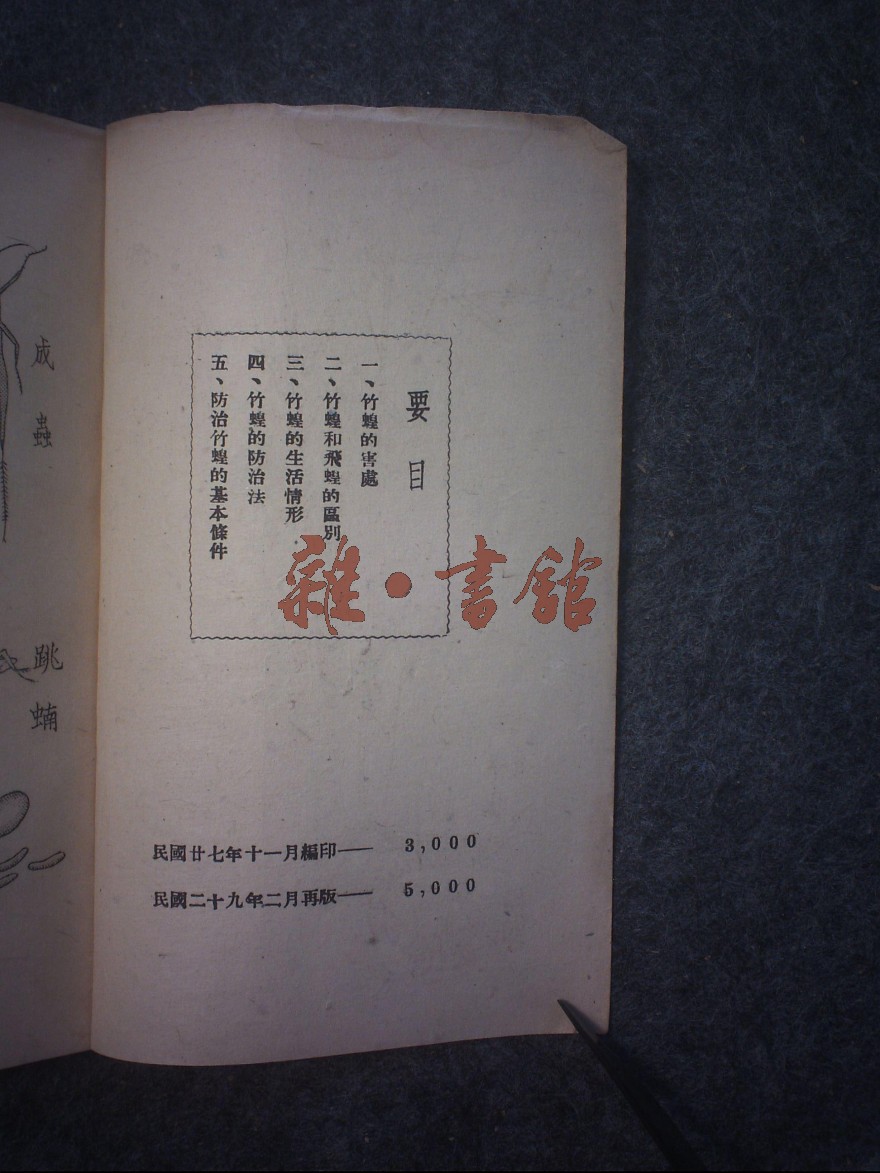 要目
一、竹蝗的害處
二、竹蝗和飛蝗的區別
三、竹蝗的生活情形
四、竹蝗的防治法
五、防治竹蝗的基本條件
民國廿七年十一月編印—— 3,000
民國二十九年二月再版—— 5,000
成蟲
跳蝻
雜·書館